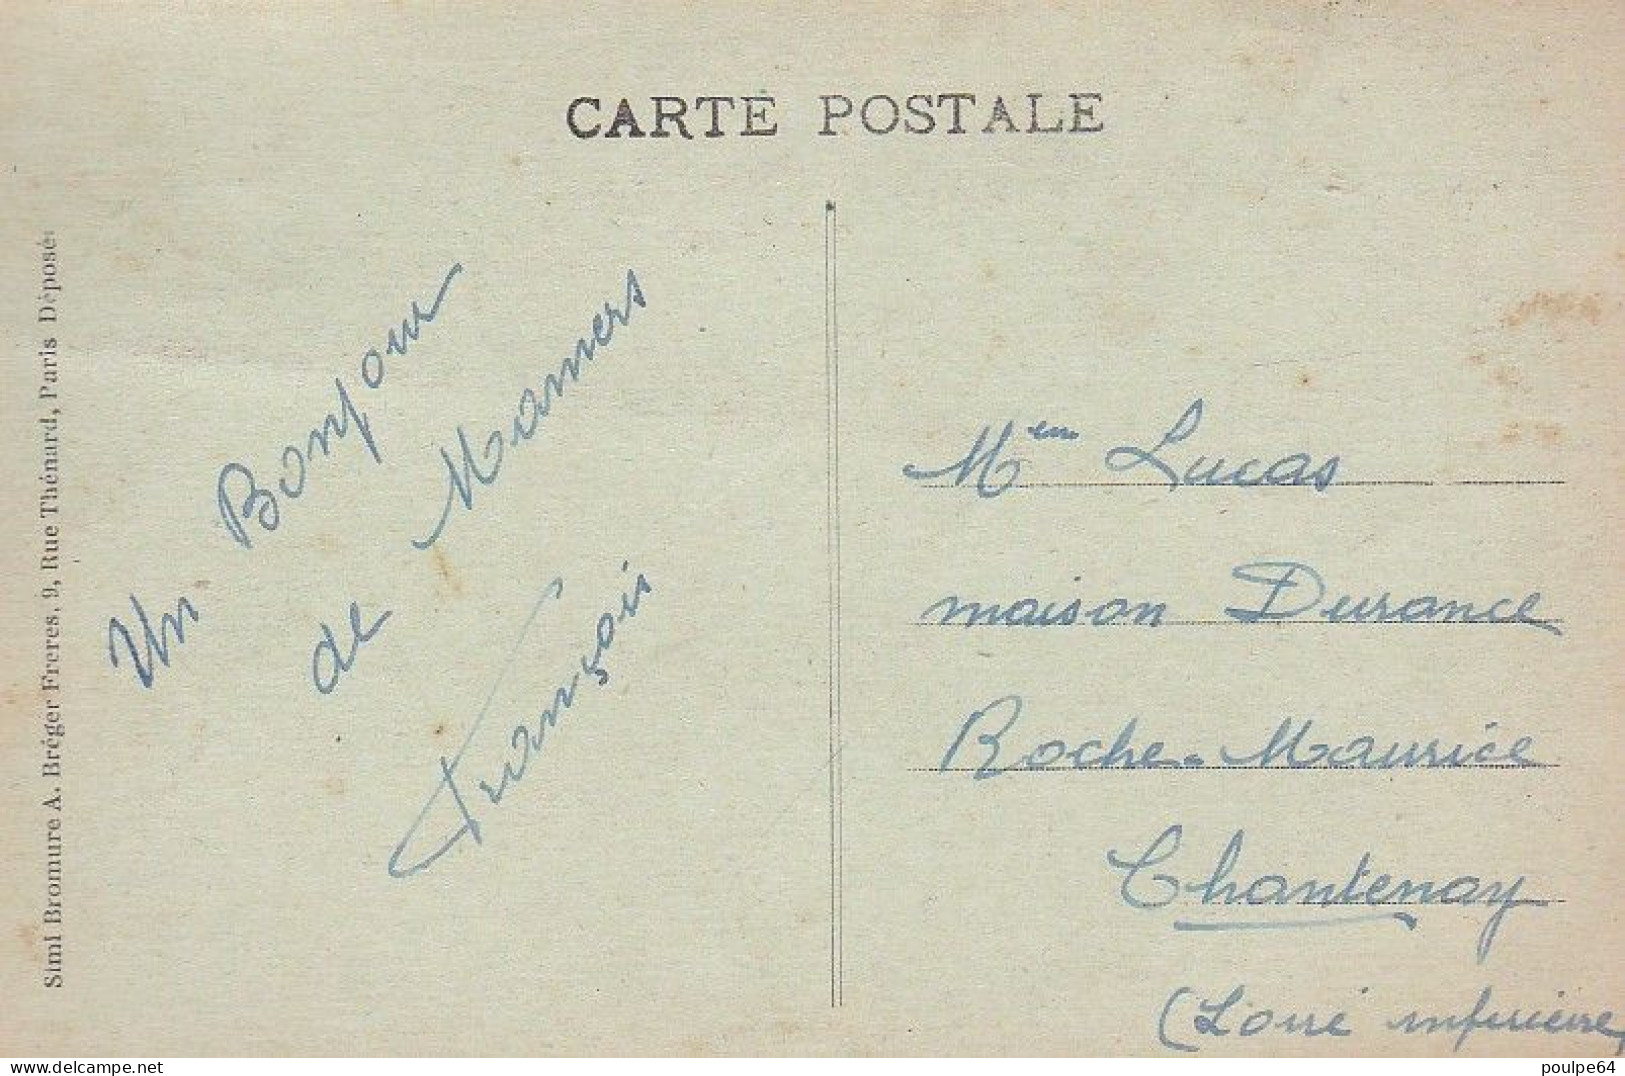 CARTE POSTALE
Simi Bromure A. Bréger Freres, 9, Rue Thénard, Paris Déposé
Un Bonjour
de Mamers
François
Mem Lucas
maison Durance
Roche-Maurice
Chantenay
(Loire inférieure)
delcampe.net
poulpe64